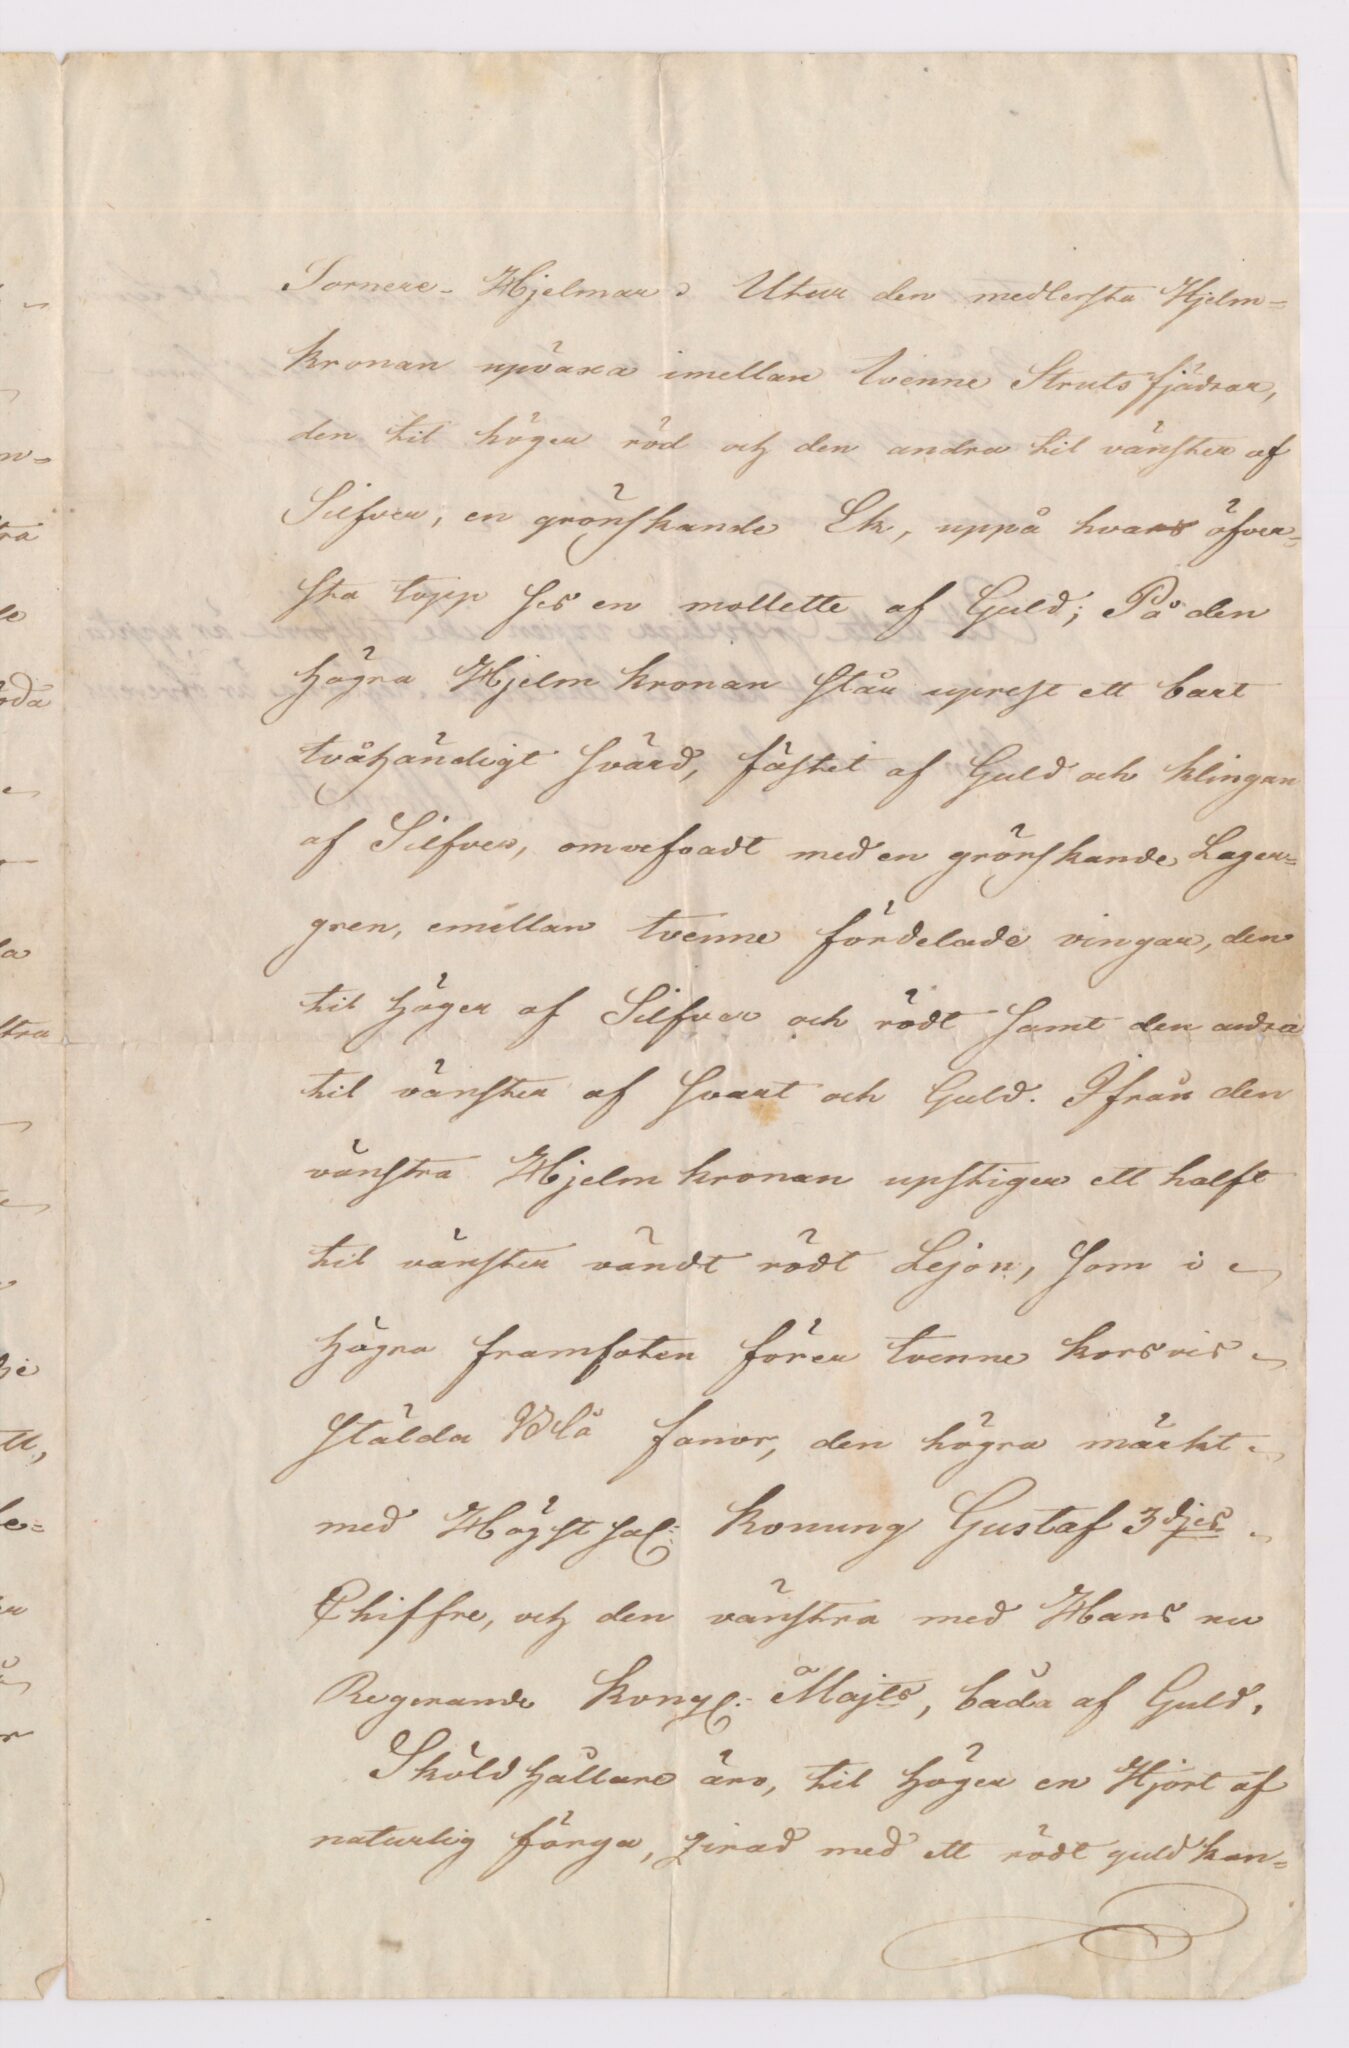 Tornere-Hjelmar: Utur den medlersta Hjelm=
kronan upväxa imellan tvenne Strutsfjädrar,
den til höger röd och den andra til vänster af
Silfver, en grönskande Ek, uppå hvars öfver=
sta topp ses en mollette af Guld; På den
högra Hjelm kronan står uprest ett bart
tvåhändigt svärd, fästet af Guld och klingan
af Silfver, omvefvadt med en grönskande Lager=
gren, emellan tvenne fördelade vingar, den
til höger af Silfver och rödt samt den andra
til vänster af svart och Guld. Ifrån den
vänstra Hjelm kronan upstiger ett halft
til vänster vändt rödt Lejon, som i
högra framfoten förer tvenne korsvis
stälda Blå fanor, den högra märkt
med Högstsal: Konung Gustaf 3djes
Chiffre, och den vänstra med Hans nu
Regerande Kongl: Majts, båda af Guld.
Sköldhållare äro, til höger en Hjort af
naturlig färga, zirad med ett rödt guldkan=